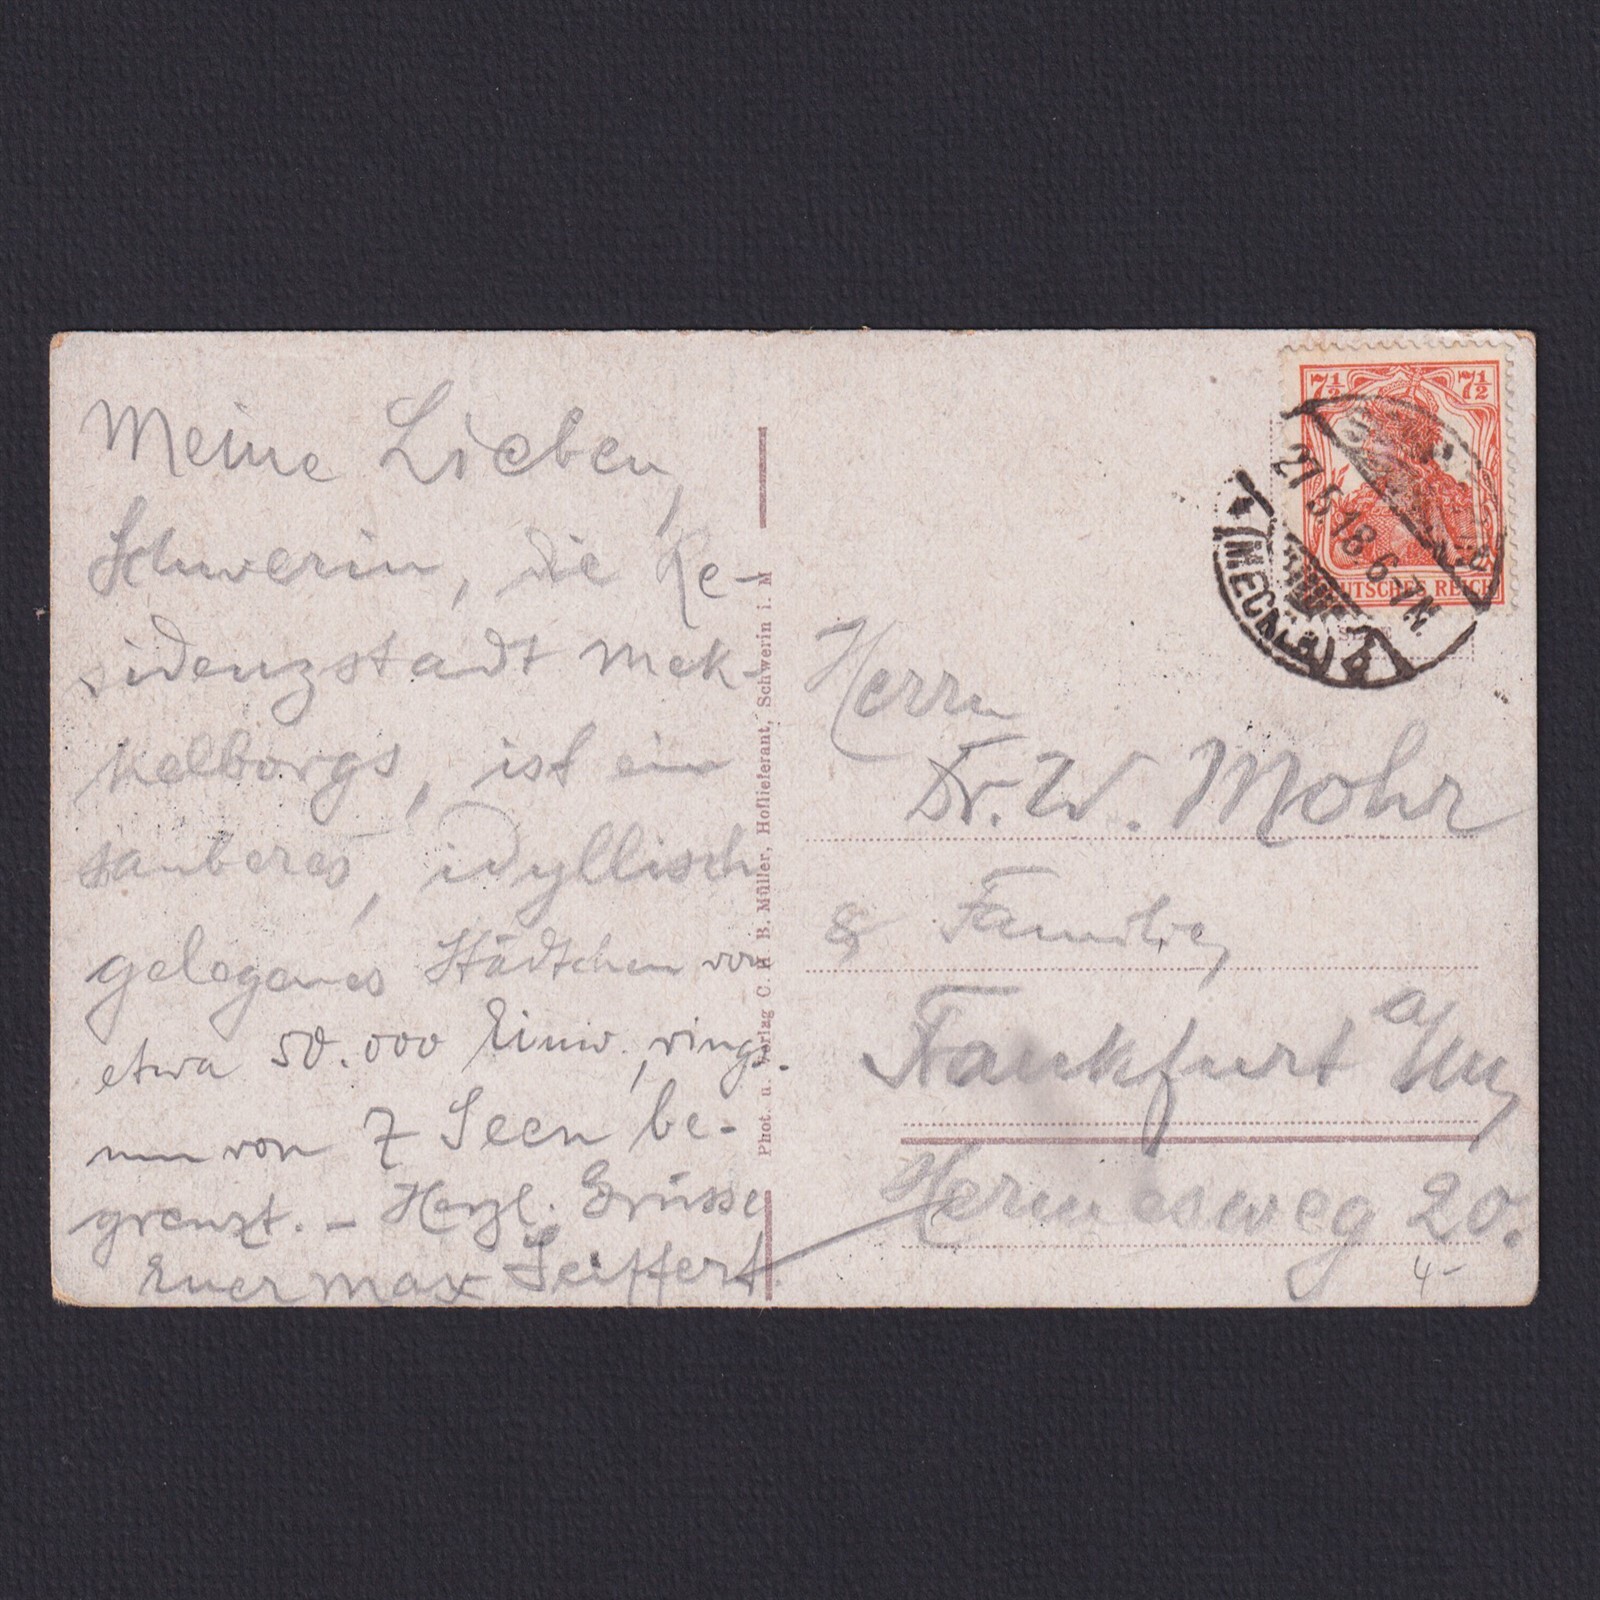 Meine Lieben,
Schwerin, die Re-
sidenzstadt Mek-
kelborgs, ist ein
sauberes, idyllisch
gelegenes Städtchen von
etwa 50.000 Einw., rings-
um von 7 Seen be-
grenzt. – Herzl. Grüsse
Euer Max Seiffert.
Phot. u. Verlag C. H. B. Müller, Hoflieferant, Schwerin i. M
7½ 7½
DEUTSCHES REICH
27.5.18. 6-7N.
(MECKLB)
Herrn
Dr. W. Mohr
& Familie,
Frankfurt a/M,
Hermesweg 20.
4-